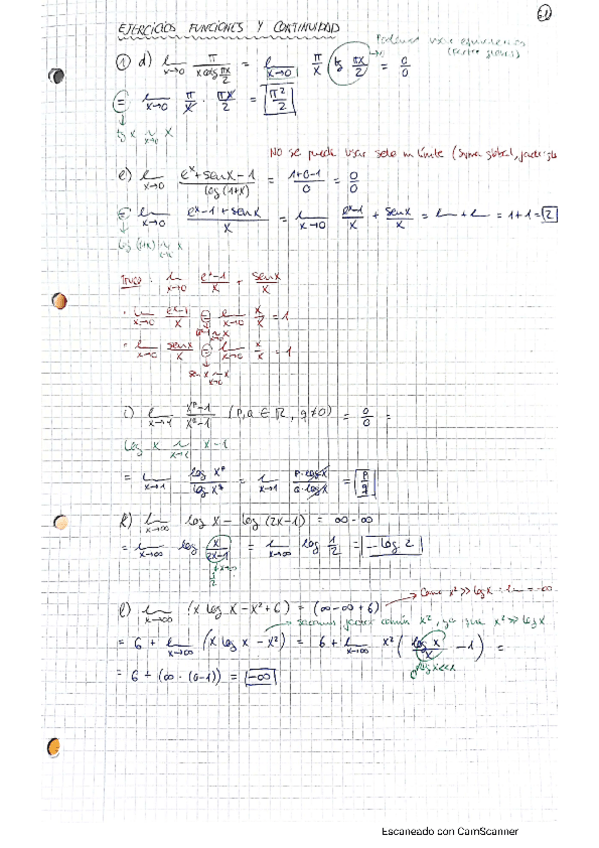 EJERCICIOS FUNCIONES Y CONTINUIDAD
① d) lim x→0 π / (x cotg πx/2) = lim x→0 π/x tg πx/2 = 0/0
= lim x→0 π/x · πx/2 = π²/2
tg x ~ x→0 x
No se puede usar solo un límite (suma global,
e) lim x→0 (eˣ + sen x − 1) / log(1+x) = (1+0−1)/0 = 0/0
= lim x→0 (eˣ − 1 + sen x) / x = lim x→0 (eˣ−1)/x + sen x/x = lim + lim = 1+1 = 2
log(1+x) ~ x→0 x
Truco: lim x→0 (eˣ−1)/x + sen x/x
· lim x→0 (eˣ−1)/x = lim x→0 x/x = 1
eˣ−1 ~ x
· lim x→0 sen x/x = lim x→0 x/x = 1
sen x ~ x→0 x
i) lim x→1 (xᵖ−1)/(x^q−1) (p,q ∈ ℝ, q≠0) = 0/0 =
log x ~ x→1 x−1
= lim x→1 log xᵖ / log x^q = lim x→1 p·log x / q·log x = p/q
k) lim x→∞ log x − log(2x−1) = ∞−∞
= lim x→∞ log x/(2x−1) = lim x→∞ log 1/2 = −log 2
l) lim x→∞ (x log x − x² + 6) = (∞−∞+6) → Como x² >> log x : lim = −∞
→ sacamos factor común x², ya que x² >> log x
= 6 + lim x→∞ (x log x − x²) = 6 + lim x→∞ x² (log x/x − 1) =
0 log x<<x
= 6 + (∞·(0−1)) = −∞
Escaneado con CamScanner